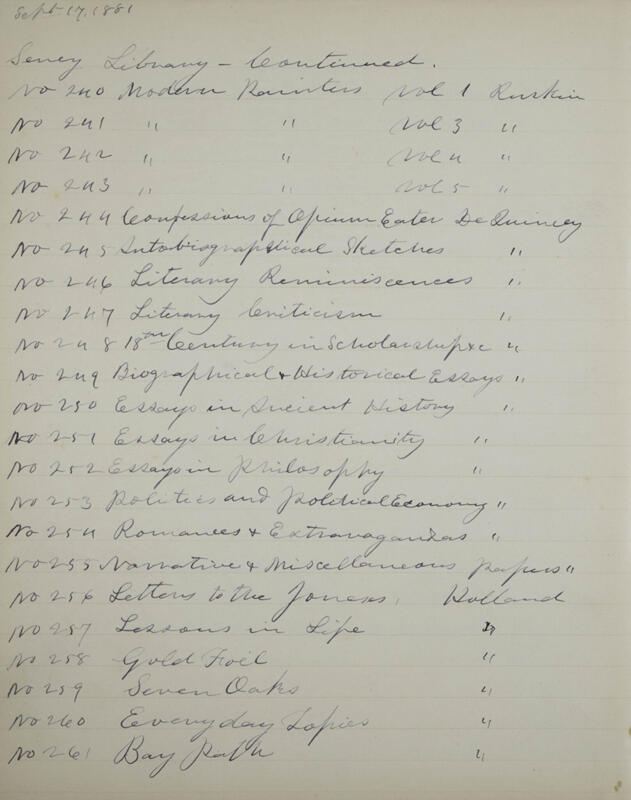 Sept 17, 1881
Seney Library - Continued.
No 240 Modern Painters Vol 1 Ruskin
No 241 " " Vol 3 "
No 242 " " Vol 4 "
No 243 " " Vol 5 "
No 244 Confessions of Opium Eater De Quincey
No 245 Autobiographical Sketches "
No 246 Literary Reminiscences "
No 247 Literary Criticism "
No 248 18th Century in Scholarship &c "
No 249 Biographical & Historical Essays "
No 250 Essays in Ancient History "
No 251 Essays in Christianity "
No 252 Essays in Philosophy "
No 253 Politics and Political Economy "
No 254 Romances & Extravaganzas "
No 255 Narrative & Miscellaneous papers "
No 256 Letters to the Joneses. Holland
No 257 Lessons in Life "
No 258 Gold Foil "
No 259 Seven Oaks "
No 260 Everyday Topics "
No 261 Bay Path "